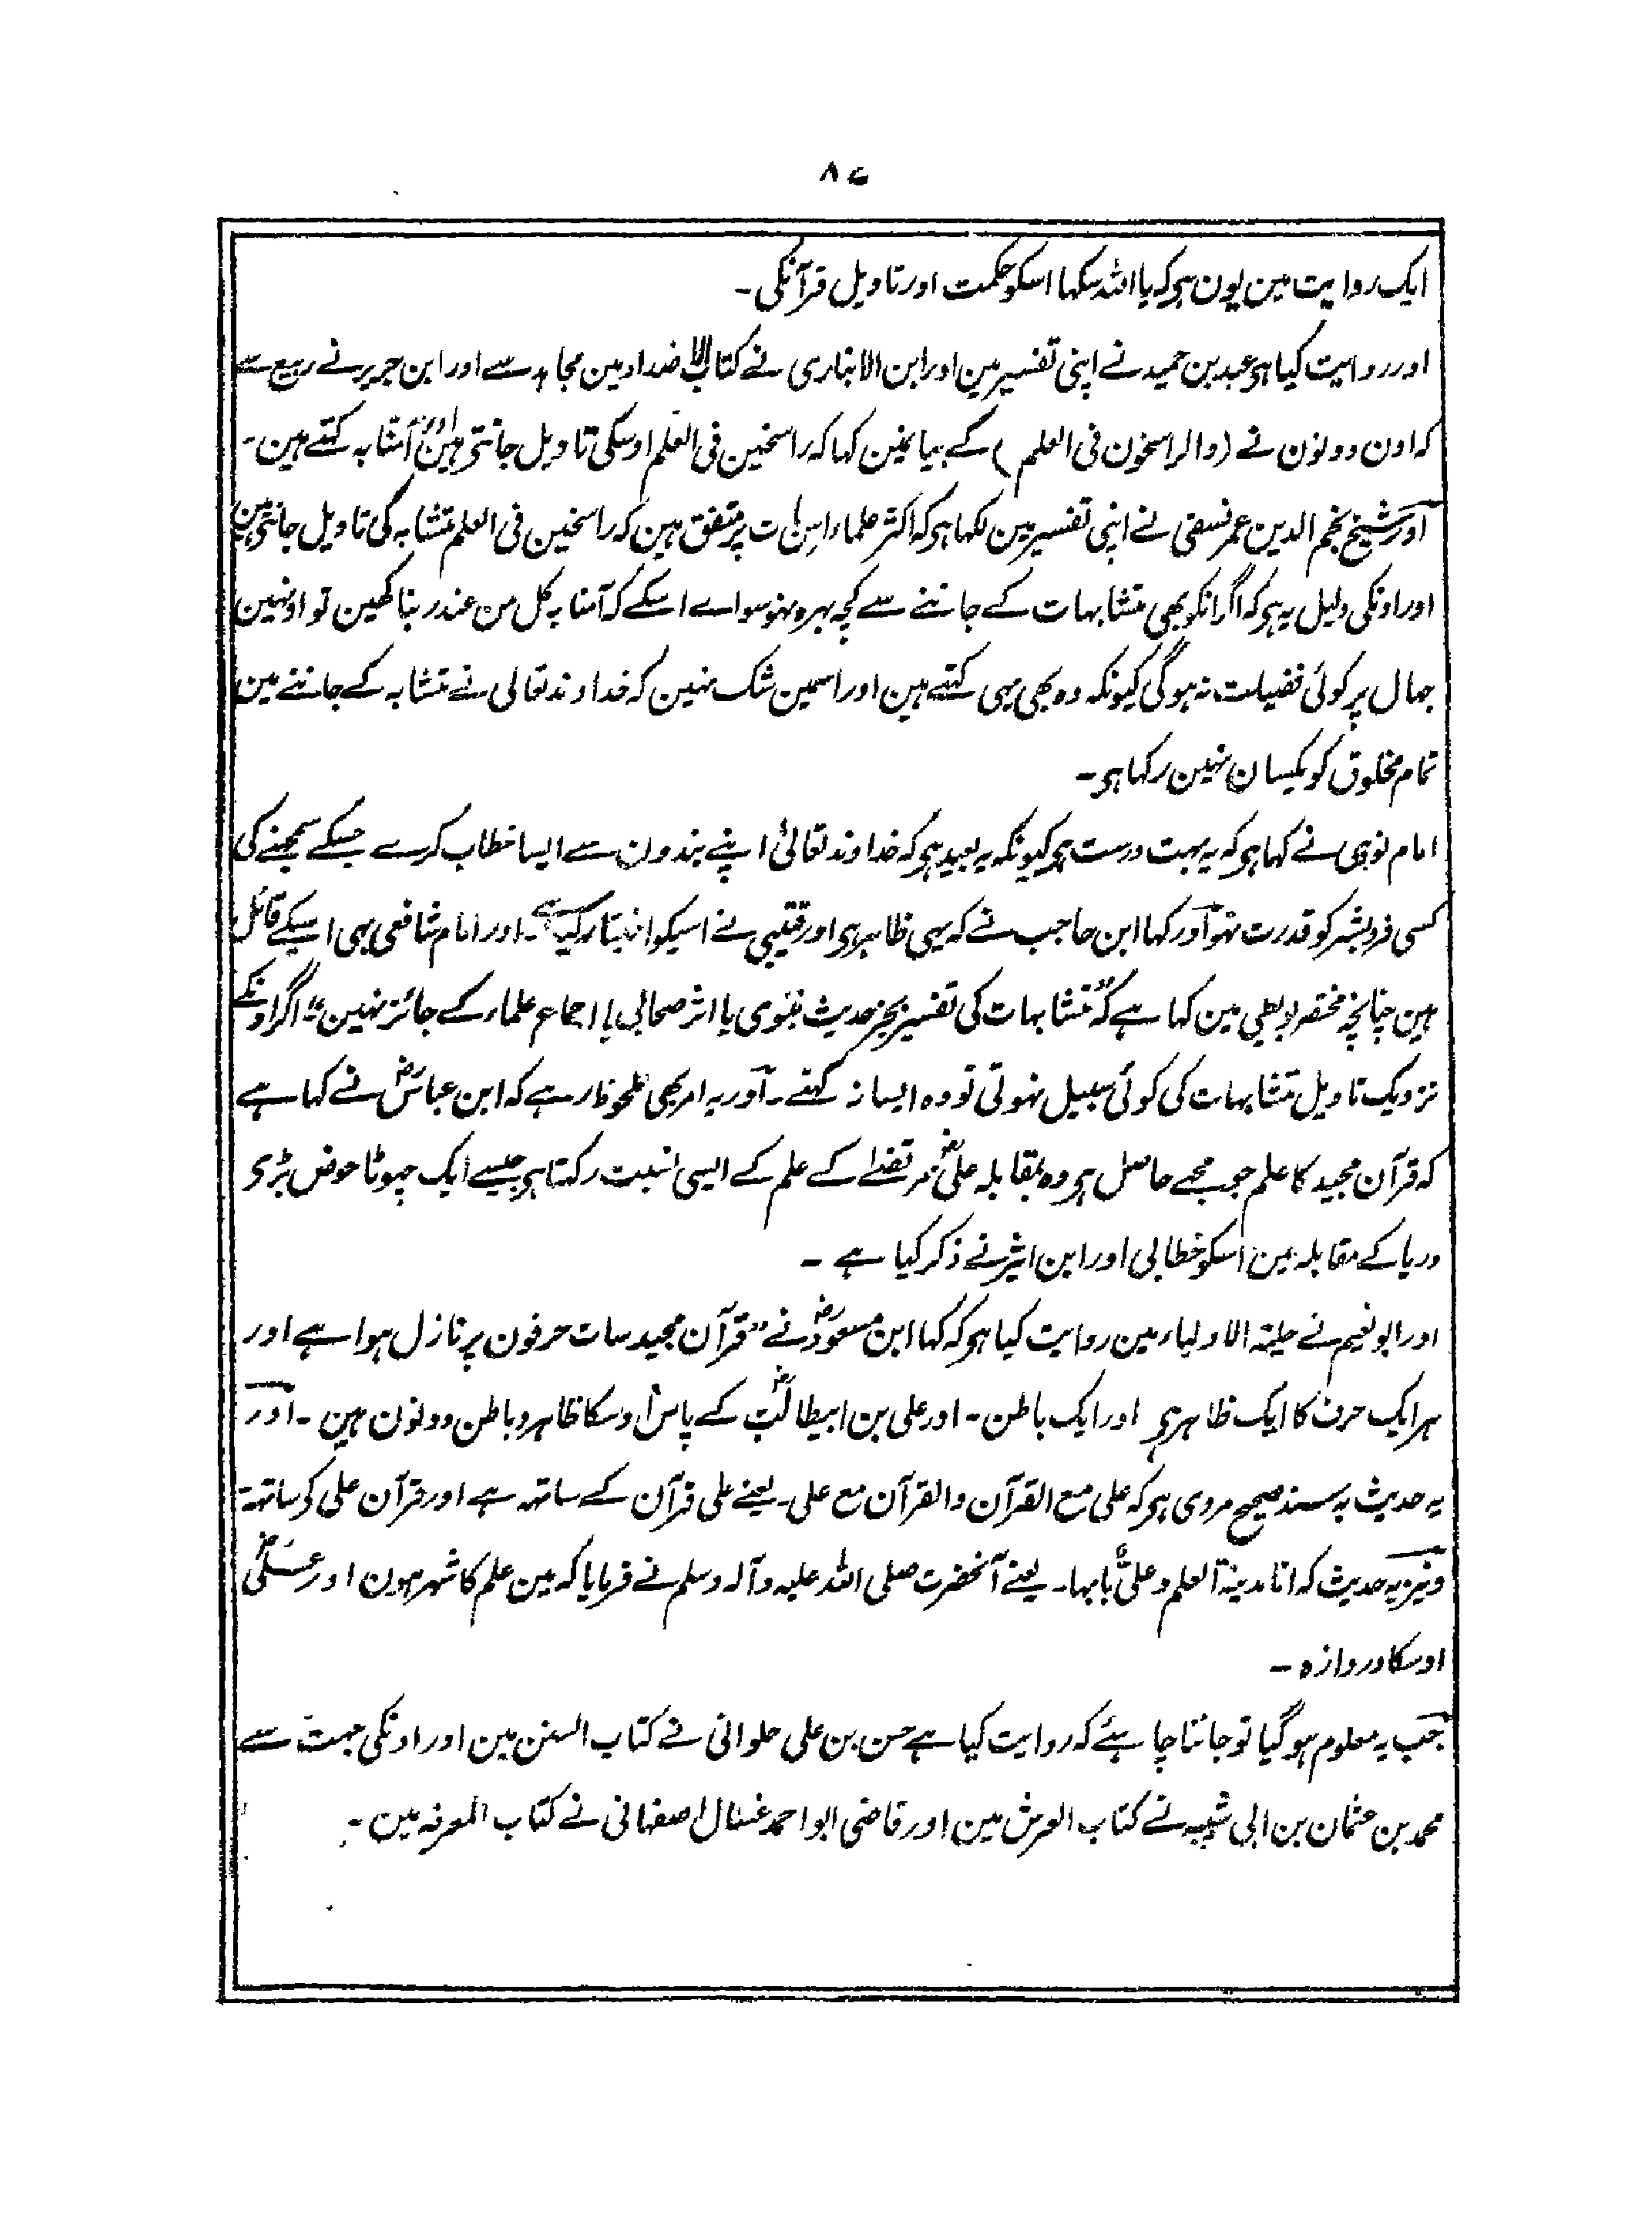 ۸۷
ایک روایت مین یون ہی کہ یا اللہ سکہا اسکو حکمت اور تاویل قرآنکی ۔
اور روایت کیا ہی عبد بن حمید نے اپنی تفسیر مین اور ابن الانباری نے کتاب الاضداد مین مجاہد سے اور ابن جریر نے ربیع سے
کہ اون دونون نے (والراسخون فی العلم) کے بیانمین کہا کہ راسخین فی العلم اوسکی تاویل جانتی ہین اور آمنا بہ کہتے ہین ۔
اور شیخ نجم الدین عمر نسفی نے اپنی تفسیر مین لکہا ہی کہ اکثر علماء اس بات پر متفق ہین کہ راسخین فی العلم متشابہ کی تاویل جانتی ہین
اور اونکی دلیل یہ ہی کہ اگر انکو بھی متشابہات کے جاننے سے کچہ بہرہ نہو سواے اسکے کہ آمنا بہ کل من عند ربنا کہین تو اونہین
جہال پر کوئی فضیلت نہ ہوگی کیونکہ وہ بھی یہی کہتے ہین اور اسمین شک نہین کہ خداوند تعالی نے متشابہ کے جاننے مین
تمام مخلوق کو یکسان نہین رکہا ہی ۔
امام نووی نے کہا ہی کہ یہ بہت درست ہی کیونکہ یہ بعید ہی کہ خداوند تعالیٰ اپنے بندون سے ایسا خطاب کرے جسکے سمجہنے کی
کسی فرد بشر کو قدرت نہو اور کہا ابن حاجب نے کہ یہی ظاہر ہی اور قتیبی نے اسیکو اختیار کیا ہے ۔ اور امام شافعی بہی اسیکے قائل
ہین چنانچہ مختصر بویطی مین کہا ہے کہ "متشابہات کی تفسیر بجز حدیث نبوی یا اثر صحابی یا اجماع علماء کے جائز نہین" اگر اونکے
نزدیک تاویل متشابہات کی کوئی سبیل نہوتی تو وہ ایسا نہ کہتے ۔ اور یہ امر بھی ملحوظ رہے کہ ابن عباسؓ نے کہا ہے
کہ قرآن مجید کا علم جو مجھے حاصل ہی وہ بمقابلہ علیؓ مرتضےٰ کے علم کے ایسی نسبت رکہتا ہی جیسے ایک چہوٹا حوض بڑی
دریا کے مقابلہ مین اسکو خطابی اور ابن اثیر نے ذکر کیا ہے ۔
اور ابو نعیم نے حلیۃ الاولیاء مین روایت کیا ہی کہ کہا ابن مسعودؓ نے "قرآن مجید سات حرفون پر نازل ہوا ہے اور
ہر ایک حرف کا ایک ظاہر ہی اور ایک باطن ۔ اور علی بن ابیطالبؓ کے پاس اوسکا ظاہر و باطن دونون ہین ۔ اور
یہ حدیث بہ سند صحیح مروی ہی کہ علی مع القرآن والقرآن مع علی ۔ یعنے علی قرآن کے ساتھ ہے اور قرآن علی کو ساتھ ۔
و نیز یہ حدیث کہ انا مدینۃ العلم و علیٌّ بابہا ۔ یعنے آنحضرت صلی اللہ علیہ وآلہ وسلم نے فرمایا کہ مین علم کا شہر ہون اور علیؓ
اوسکا دروازہ ۔
جب یہ معلوم ہو گیا تو جاننا چاہئے کہ روایت کیا ہے حسن بن علی حلوانی نے کتاب السنن مین اور اونکی جہت سے
محمد بن عثمان بن ابی شیبہ نے کتاب العرش مین اور قاضی ابو احمد عسال اصفہانی نے کتاب المعرفہ مین ۔